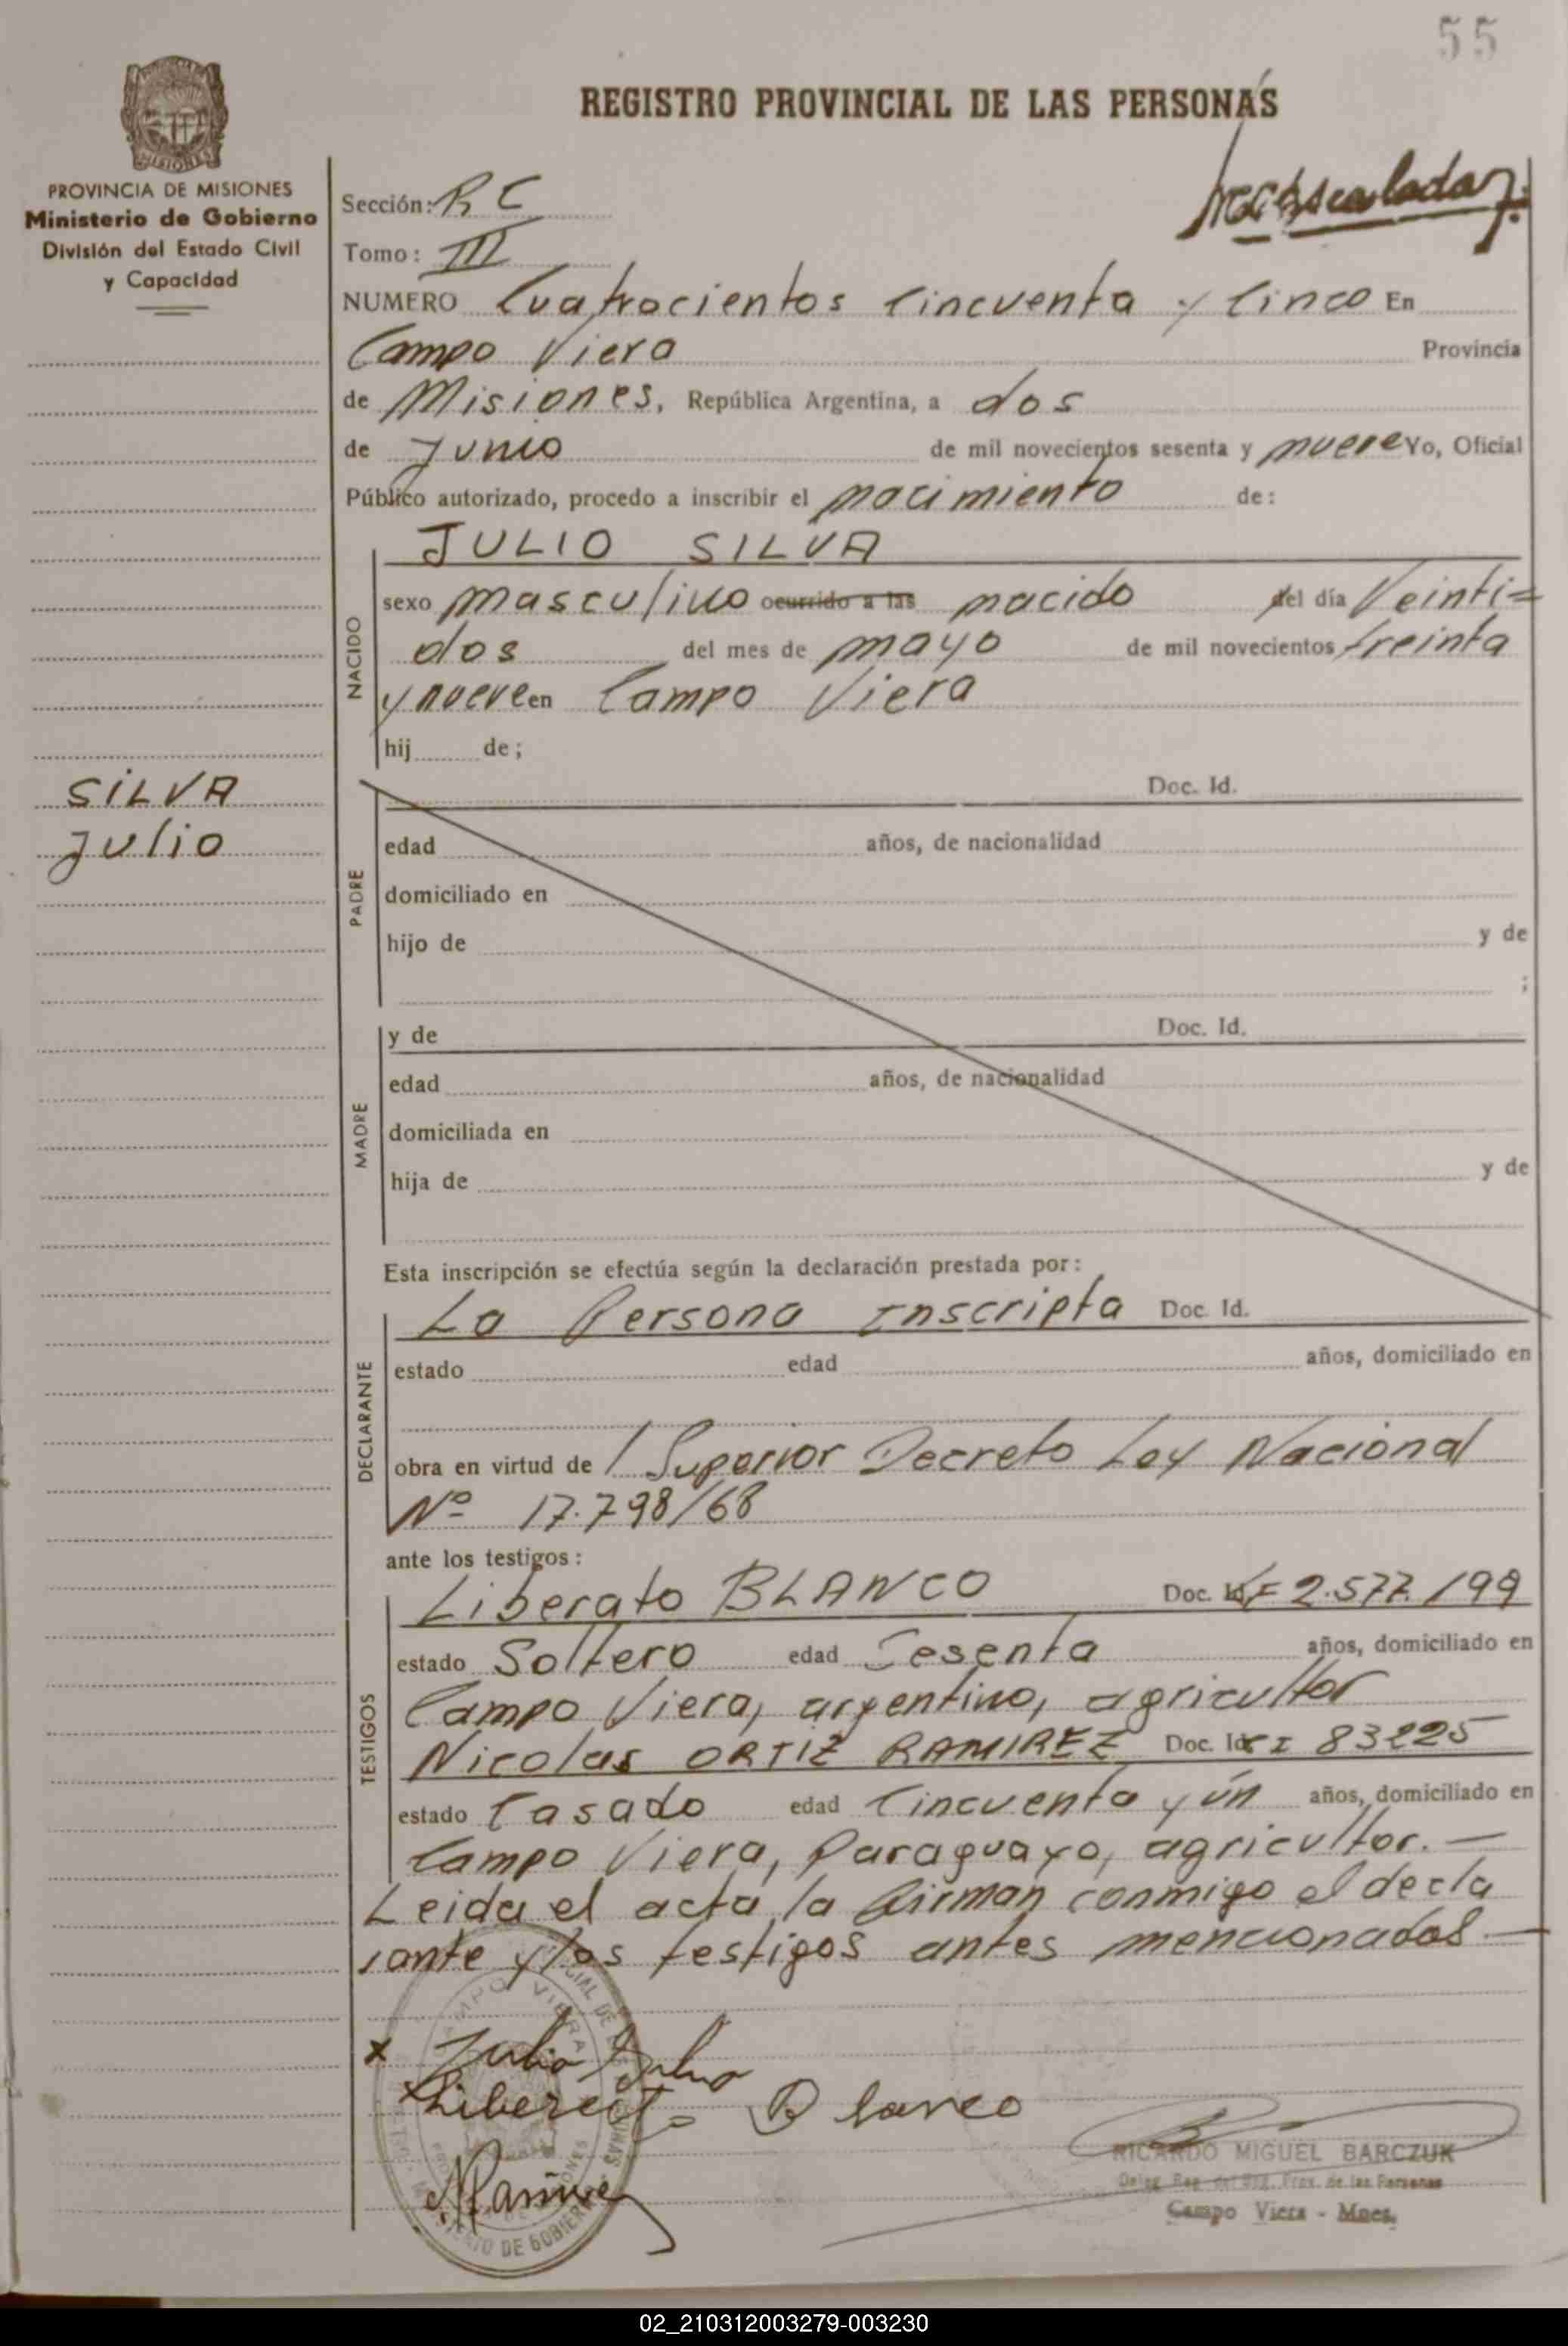 55
REGISTRO PROVINCIAL DE LAS PERSONAS
MISIONES
PROVINCIA DE MISIONES
Ministerio de Gobierno
División del Estado Civil
y Capacidad
SILVA
Julio
Sección: R C
Tomo: III
NUMERO Cuatrocientos Cincuenta y Cinco En
Campo Viera Provincia
de Misiones, República Argentina, a dos
de Junio de mil novecientos sesenta y nueve Yo, Oficial
Público autorizado, procedo a inscribir el nacimiento de:
NACIDO
JULIO SILVA
sexo masculino ocurrido a las nacido del día Veinti=
dos del mes de mayo de mil novecientos treinta
y nueve en Campo Viera
hij de;
PADRE
Doc. Id.
edad años, de nacionalidad
domiciliado en
hijo de y de
;
MADRE
y de Doc. Id.
edad años, de nacionalidad
domiciliada en
hija de y de
Esta inscripción se efectúa según la declaración prestada por:
DECLARANTE
La Persona Inscripta Doc. Id.
estado edad años, domiciliado en
obra en virtud de / Superior Decreto Ley Nacional
Nº 17.798/68
ante los testigos:
TESTIGOS
Liberato BLANCO Doc. Id 2.577.199
estado Soltero edad Sesenta años, domiciliado en
Campo Viera, argentino, agricultor
Nicolas ORTIZ RAMIREZ Doc. Id 83225
estado Casado edad Cincuenta y ún años, domiciliado en
Campo Viera, Paraguayo, agricultor. —
Leida el acta la firman conmigo el decla
rante y los testigos antes mencionados —
x Julio Silva
Liberato Blanco
NRamirez
CAMPO VIERA
MINISTERIO DE GOBIERNO
RICARDO MIGUEL BARCZUK
Deleg. Reg. del Reg. Prov. de las Personas
Campo Viera - Mnes.
02_210312003279-003230